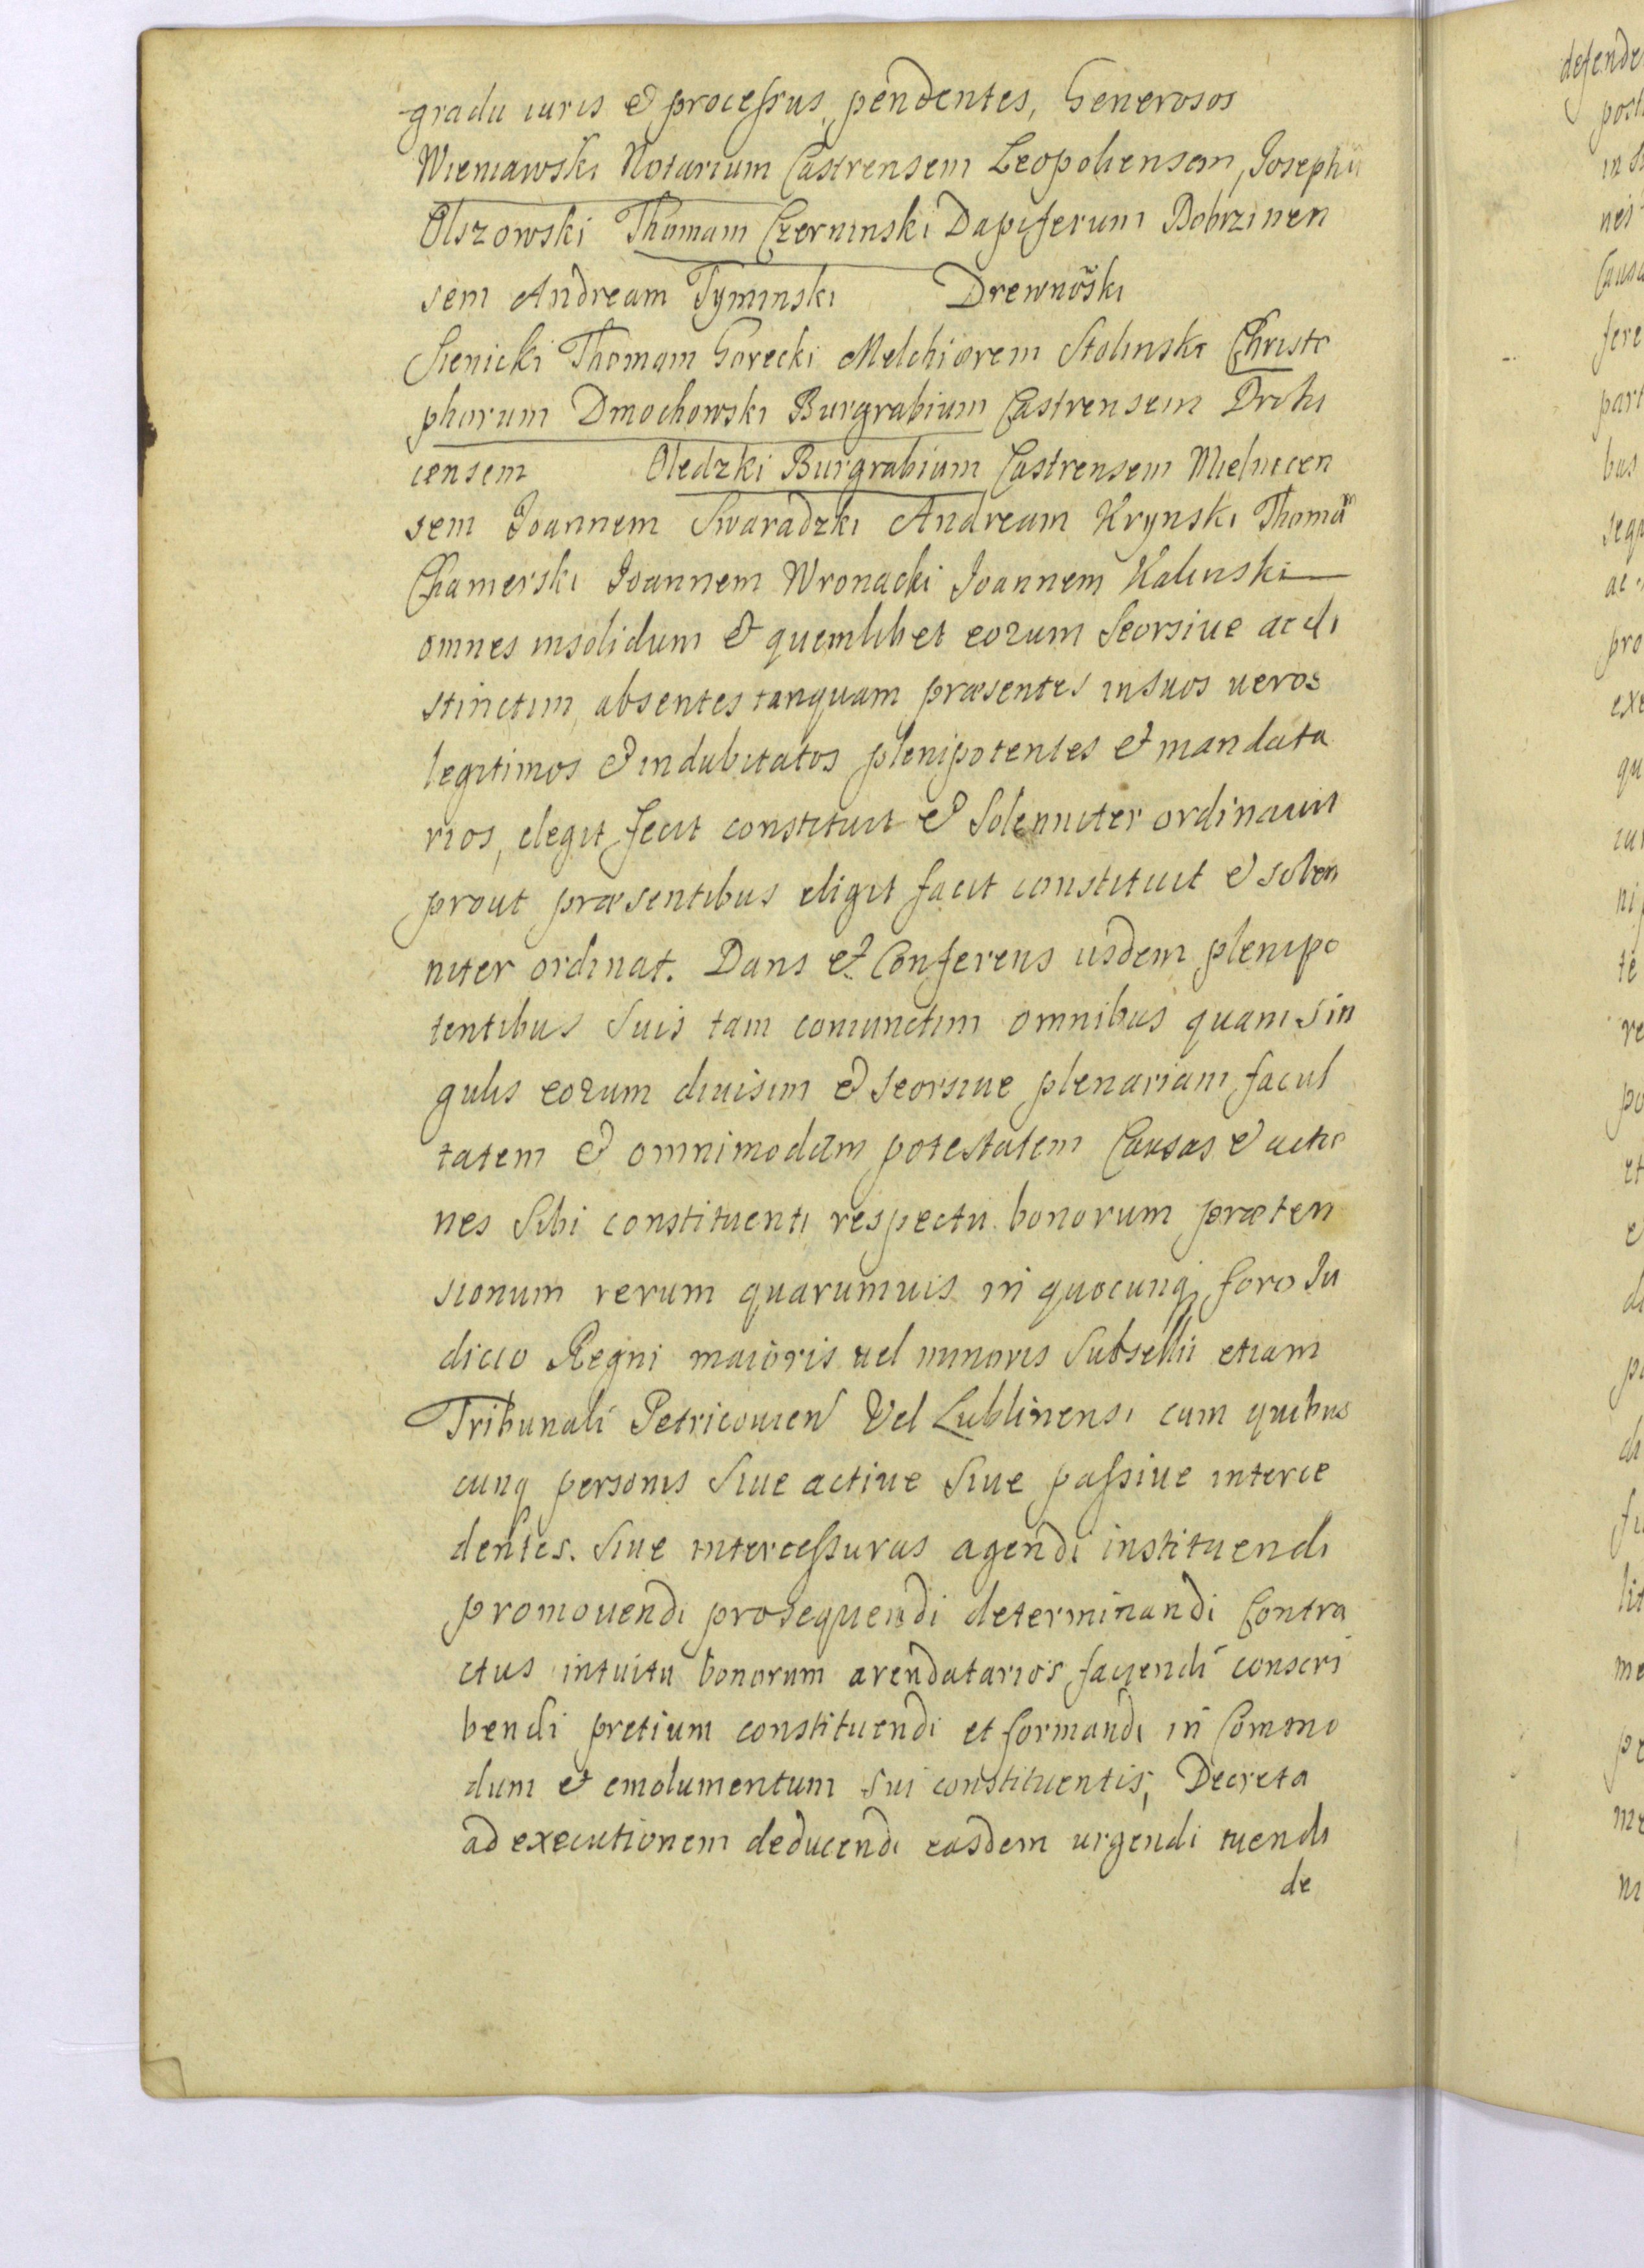 gradu iuris & processus, pendentes, Generosos
Wieniawski Notarium Castrensem Leopoliensem, Josephũ
Olszowski Thomam Czerninski Dapiferum Dobrzinen
sem Andream Tyminski Drewnoski
Sienicki Thomam Gorecki Melchiorem Stolinski Christo
phorum Dmochowski Burgrabium Castrensem Drohi
censem Oledzki Burgrabium Castrensem Mielnicen
sem Joannem Swaradzki Andream Krynski Thomam
Chamerski Joannem Wronacki Joannem Kalinski
omnes insolidum & quemlibet eorum Seorsiue ac di
stinctim absentes tanquam præsentes in suos ueros
legitimos & indubitatos plenipotentes et mandata
rios, elegit fecit constituit & Solenniter ordinauit
prout præsentibus eligit facit constituit & solen
niter ordinat. Dans et Conferens iisdem plenipo
tentibus Suis tam coniunctim omnibus quam sin
gulis eorum diuisim & seorsiue plenariam facul
tatem & omnimodam potestatem Causas & actio
nes Sibi constituenti respectu bonorum præten
sionum rerum quarumuis in quocunq foro Ju
dicio Regni maioris uel minoris Subsellii etiam
Tribunali Petricouien Vel Lublinensi cum quibus
cunq personis Siue actiue Siue passiue interce
dentes. Siue intercessuras agendi instituendi
promouendi prosequendi determinandi Contra
ctus intuitu bonorum arendatarios faciendi conscri
bendi pretium constituendi et formandi in Commo
dum et emolumentum sui constituentis, Decreta
ad executionem deducendi easdem urgendi tuendi
de